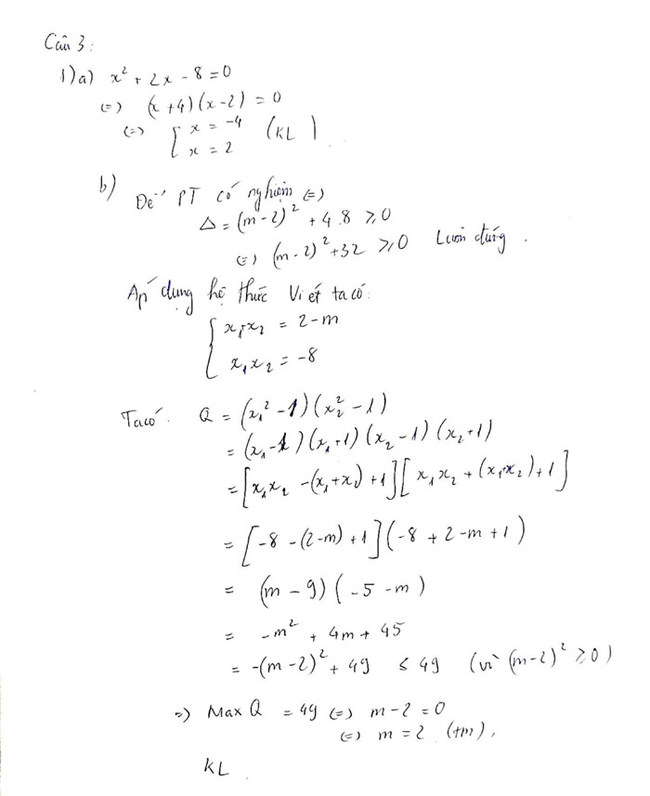 Câu 3:
1) a) x² + 2x - 8 = 0
(=) (x+4)(x-2) = 0
(=) [ x = -4
x = 2 (KL)
b) Để PT có nghiệm (=)
Δ = (m-2)² + 4.8 ≥ 0
(=) (m-2)² + 32 ≥ 0 Luôn đúng.
Áp dụng hệ thức Vi ét ta có:
{ x₁+x₂ = 2-m
x₁x₂ = -8
Ta có. Q = (x₁² - 1)(x₂² - 1)
= (x₁-1)(x₁+1)(x₂-1)(x₂+1)
= [x₁x₂ - (x₁+x₂) + 1][x₁x₂ + (x₁+x₂) + 1]
= [-8 - (2-m) + 1](-8 + 2 - m + 1)
= (m - 9)(-5 - m)
= -m² + 4m + 45
= -(m-2)² + 49 ≤ 49 (vì (m-2)² ≥ 0)
=) Max Q = 49 (=) m - 2 = 0
(=) m = 2 (tm).
KL